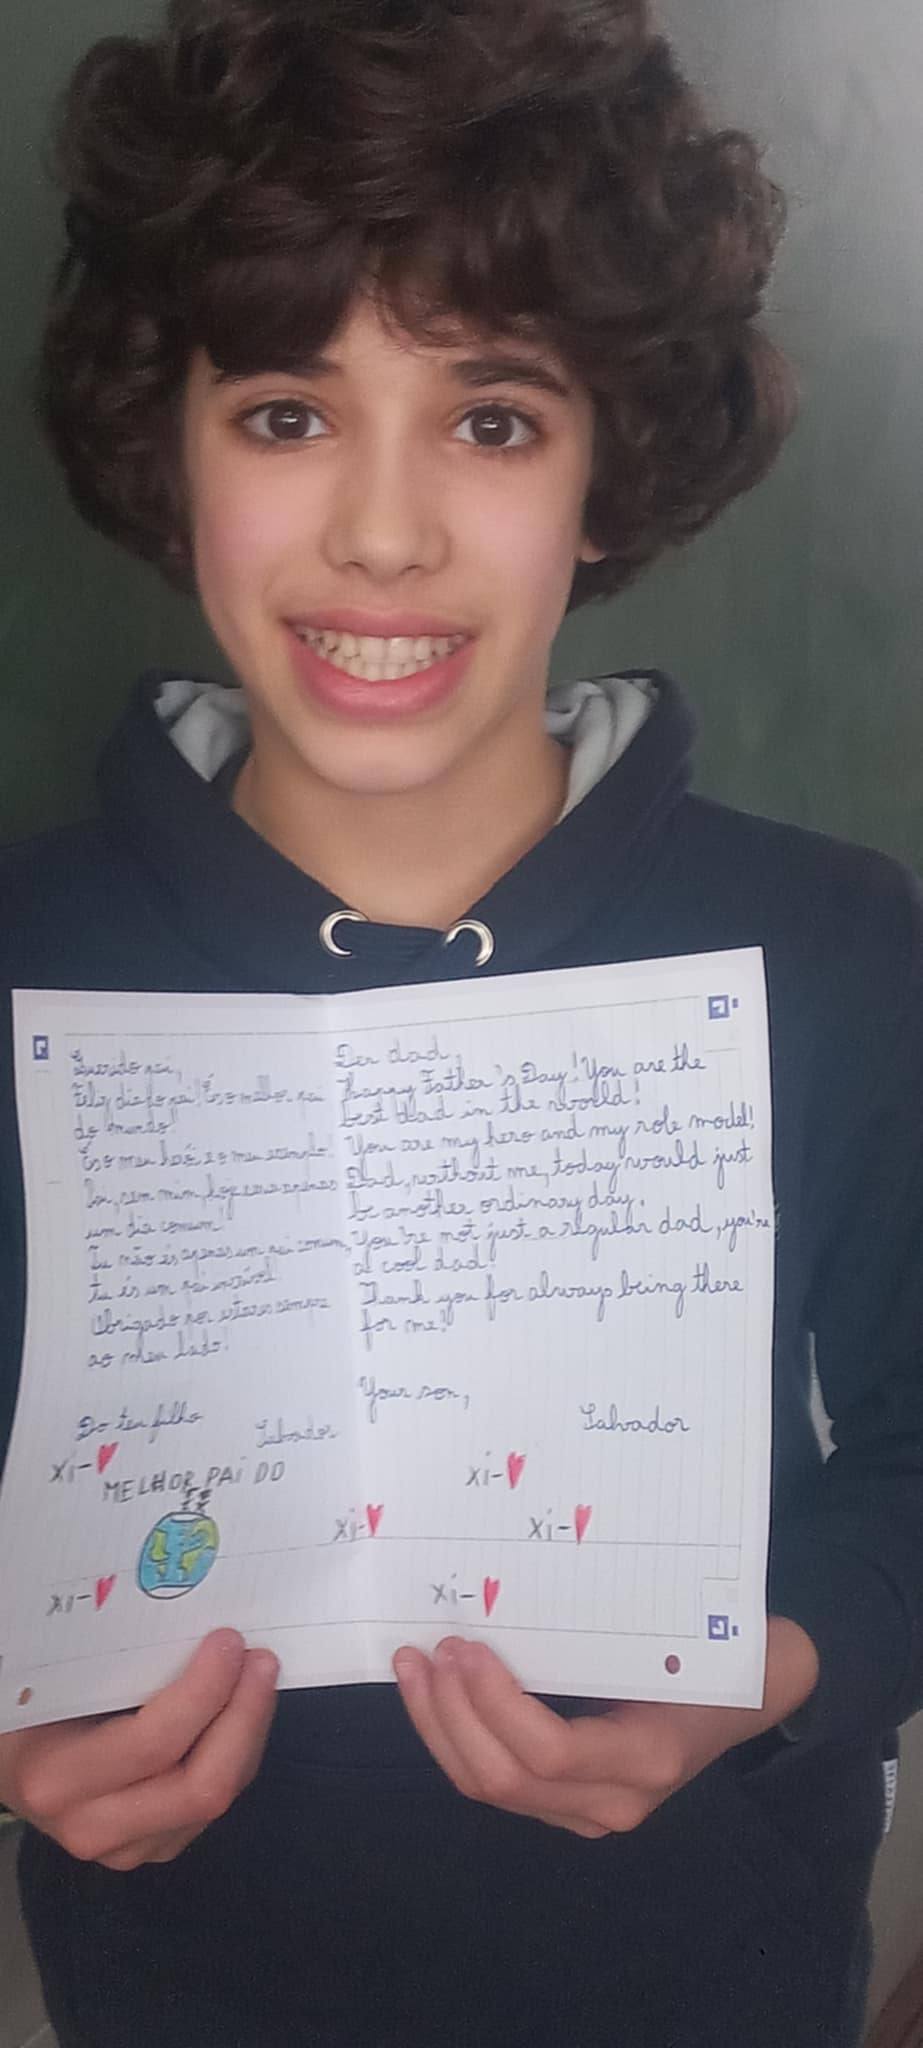 Querido pai,
Feliz dia do pai! És o melhor pai
do mundo!
És o meu herói e o meu exemplo!
Pai, sem mim, hoje seria apenas
um dia comum!
Tu não és apenas um pai comum,
tu és um pai incrível!
Obrigado por estares sempre
ao meu lado!
Do teu filho
Salvador
xi-
MELHOR PAI DO
xi-
Der dad,
Happy Father's Day! You are the
best dad in the world!
You are my hero and my role model!
Dad, without me, today would just
be another ordinary day.
You're not just a regular dad, you're
a cool dad!
Thank you for always being there
for me!
Your son,
Salvador
xi-
xi-
xi-
xi-